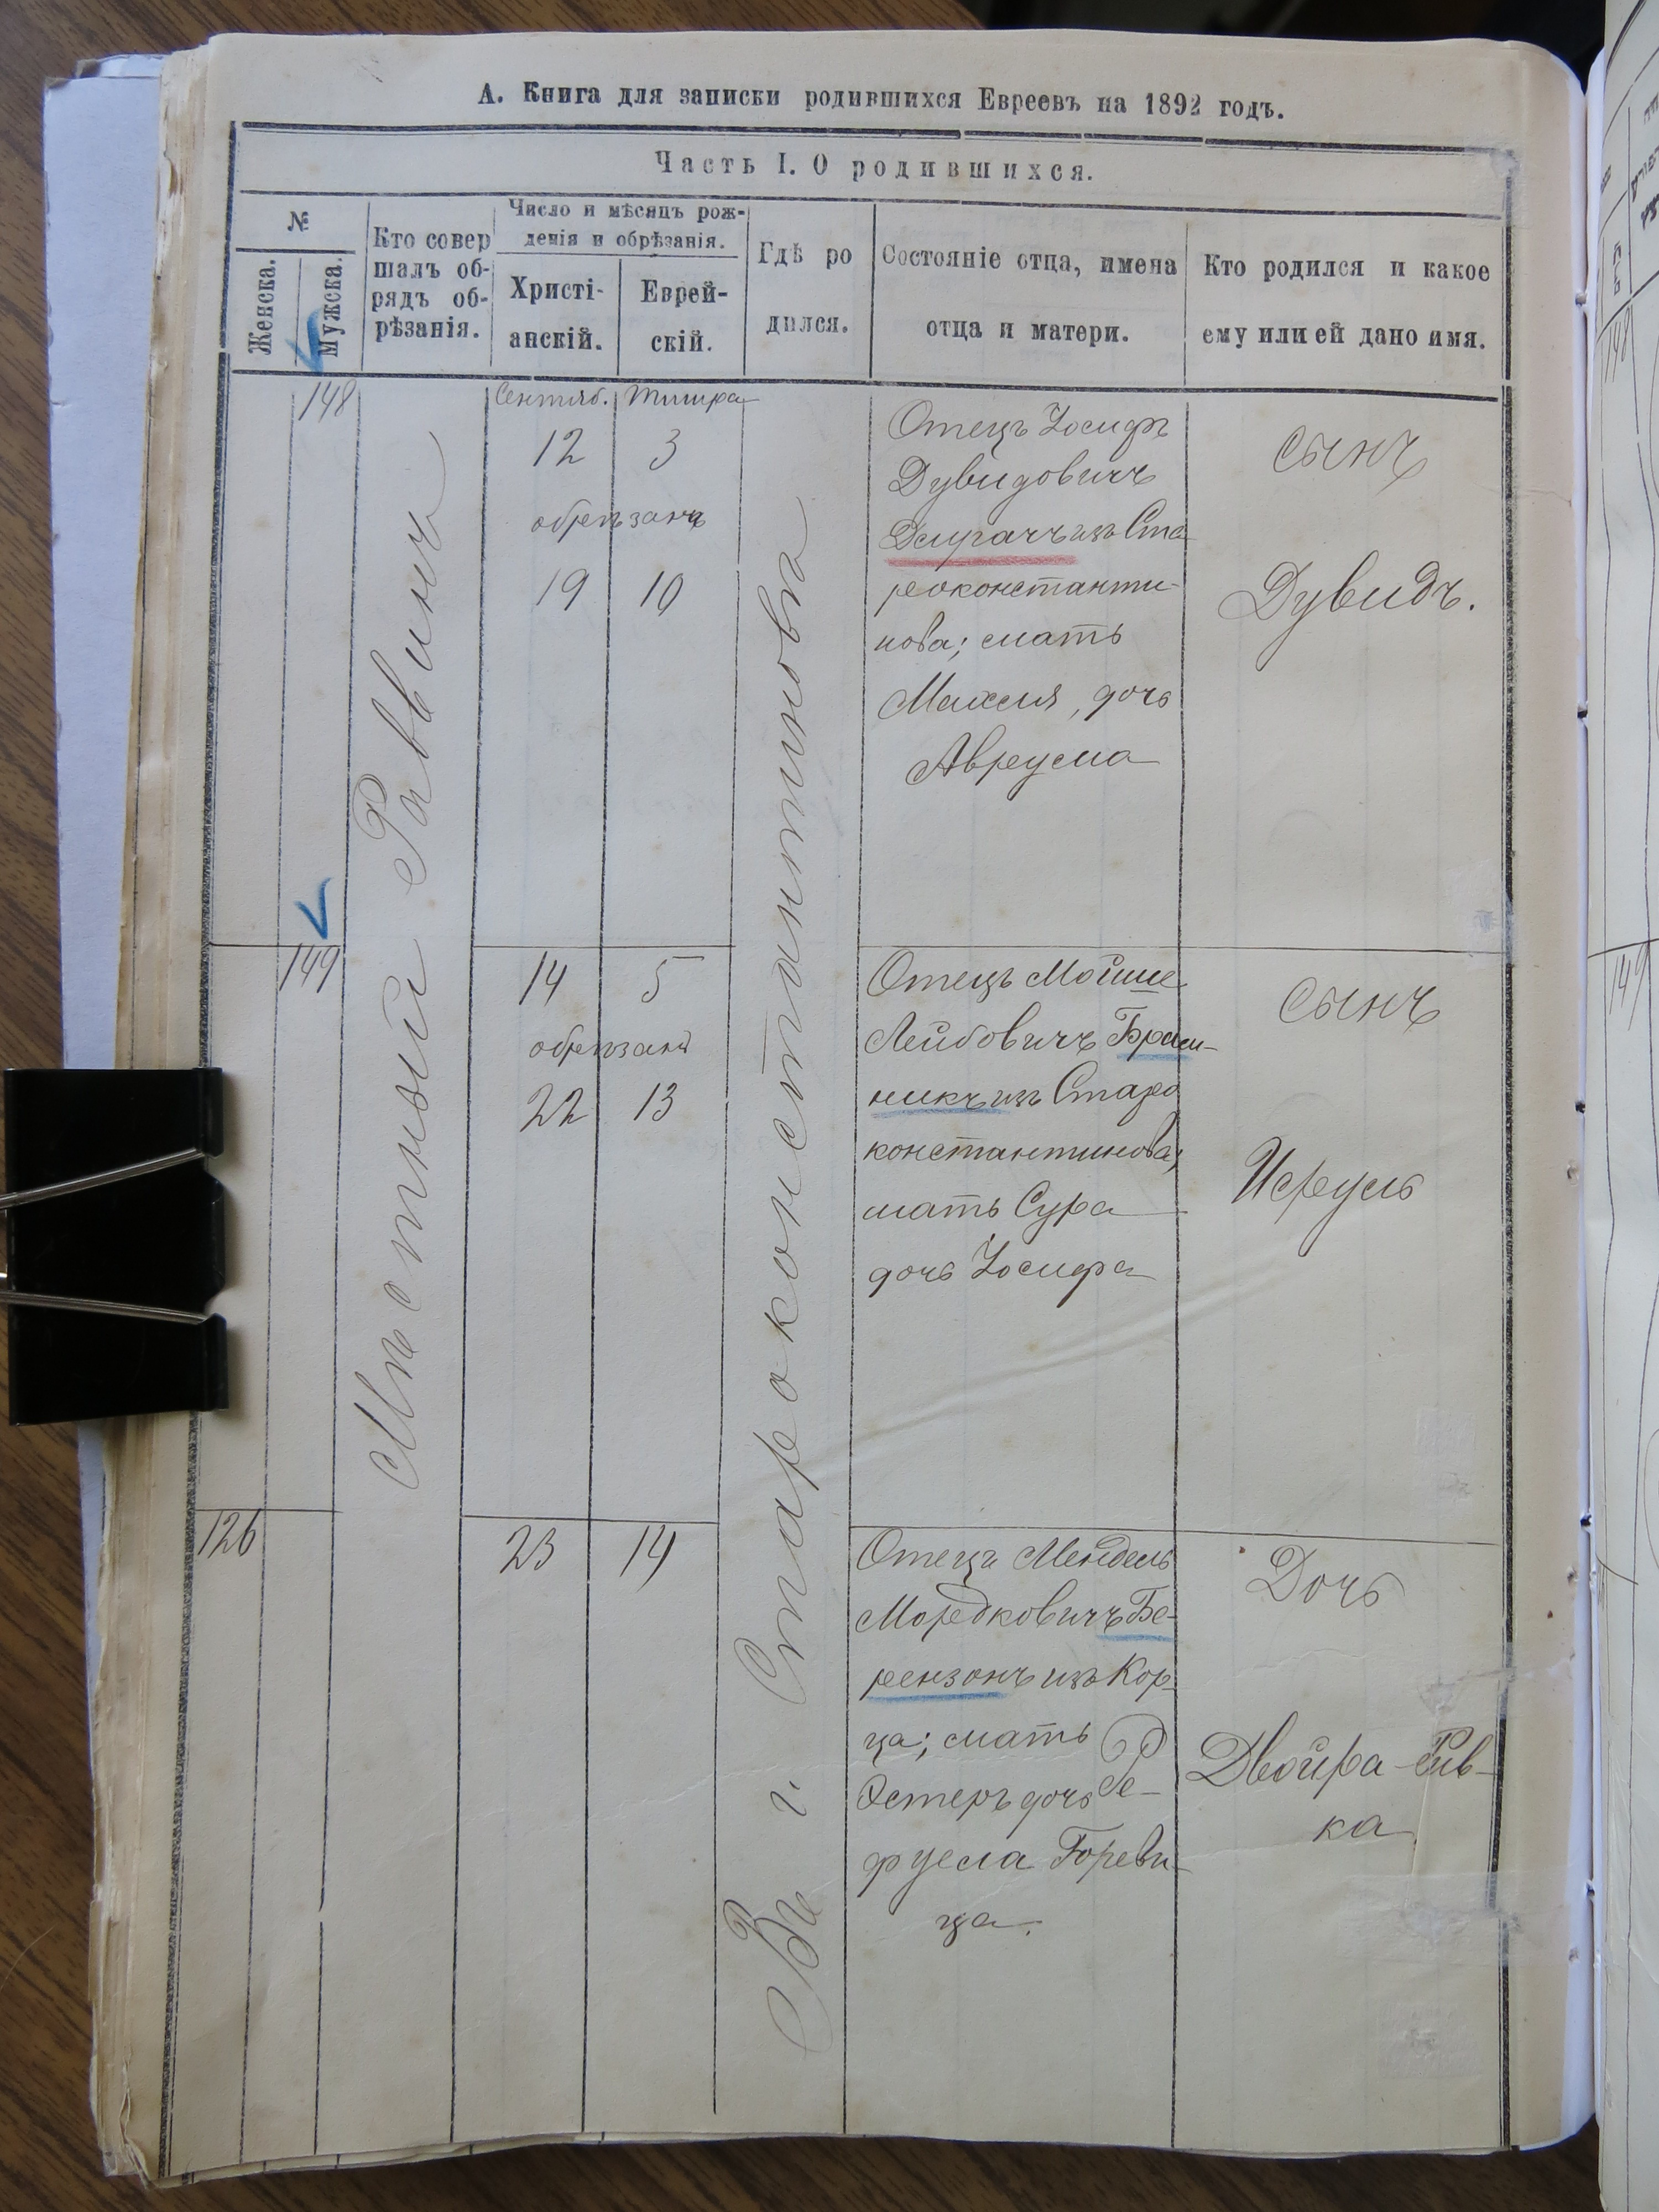 А. Книга для записки родившихся Евреевъ на 1892 годъ.
Часть I. О родившихся.
№
Женска.
Мужска.
Кто совер
шалъ об-
рядъ об-
рѣзанія.
Число и мѣсяцъ рож-
денія и обрѣзанія.
Христі-
анскій.
Еврей-
скій.
Гдѣ ро
дился.
Состояніе отца, имена
отца и матери.
Кто родился и какое
ему или ей дано имя.
Мѣстный Раввинъ
Въ г. Староконстантиновѣ
148
Сентяб. Тишра
12 3
обрѣзанъ
19 10
Отецъ Іосифъ
Дувидовичъ
изъ Ста
роконстанти-
нова; мать
дочь
Аврума
сынъ
Дувидъ.
149
14 5
обрѣзанъ
22 13
Отецъ Мойше
Лейбовичъ
никъ изъ Старо
константинова;
мать Сура
дочь Іосифа
сынъ
Исруль
126
23 14
Отецъ Мендель
Мордковичъ Бе-
рензонъ изъ Кор-
ца; мать
Эстеръ дочь Ре-
фуела Гореви-
ца.
Дочь
Двойра-Рив-
ка
148
149